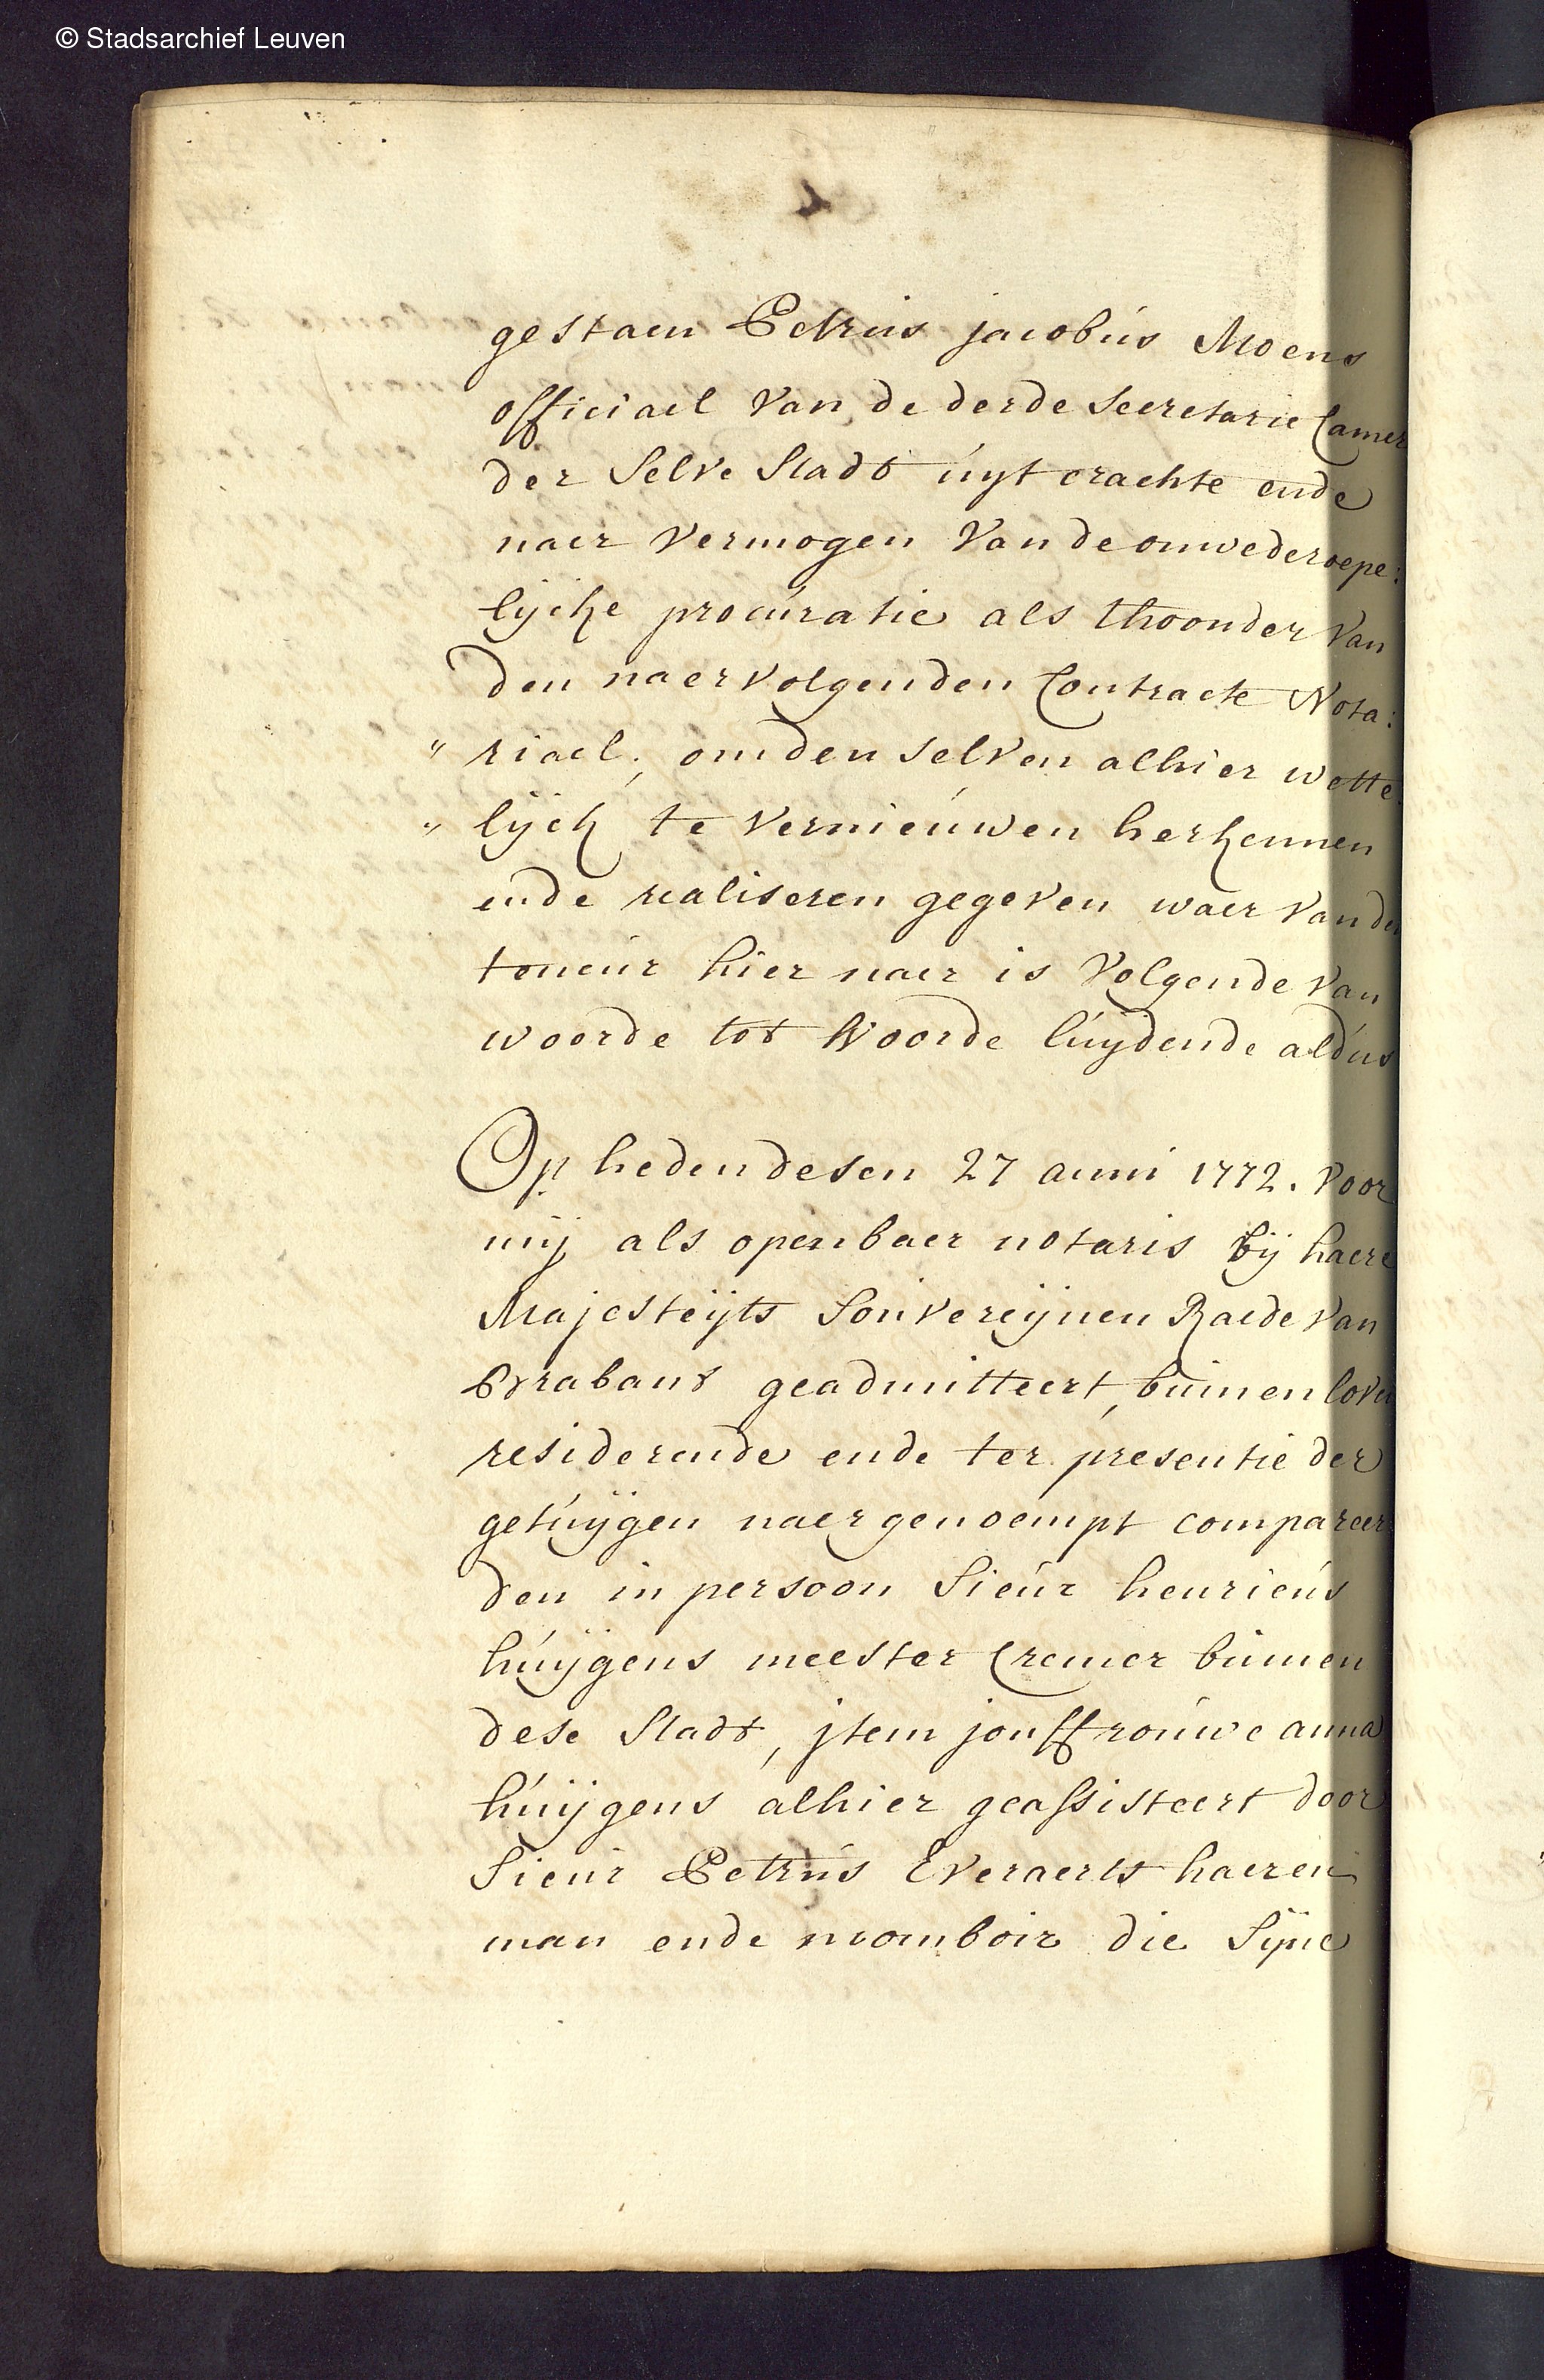 © Stadsarchief Leuven
gestaen Petrus jacobus Moens
officiael Van de derde Secretarie Camer
der Selve Stadt uyt crachte ende
naer Vermogen Van de onwederoepe:
lijcke procuratie als thoonder Van
den naervolgenden Contracte Nota:
" riael; om den selven alhier wette
" lijck te Vernieuwen herkennen
ende realiseren gegeven waer Van de
teneur hier naer is Volgende Van
woorde tot Woorde luydende aldus
Op heden desen 27 anni 1772. Voor
mij als openbaer notaris bij haere
Majesteijts Souvereijnen Raede Van
Brabant geadmitteert, binnen love
residerende ende ter presentie der
getuijgen naergenoempt compareer
den in persoon Sieur henricus
huijgens meester Cremer binnen
dese Stadt, jtem jouffrouwe anna
huijgens alhier geassisteert door
Sieur Petrus Everaerts haeren
man ende momboir die Sijne